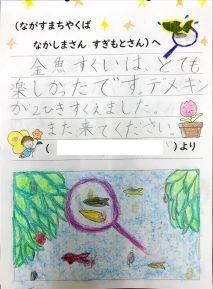 (ながすまちやくば
なかしまさん すぎもとさん)へ
金魚すくいは、とても
楽しかったです。デメキン
が2ひきすくえました。
また来てください。
( )より